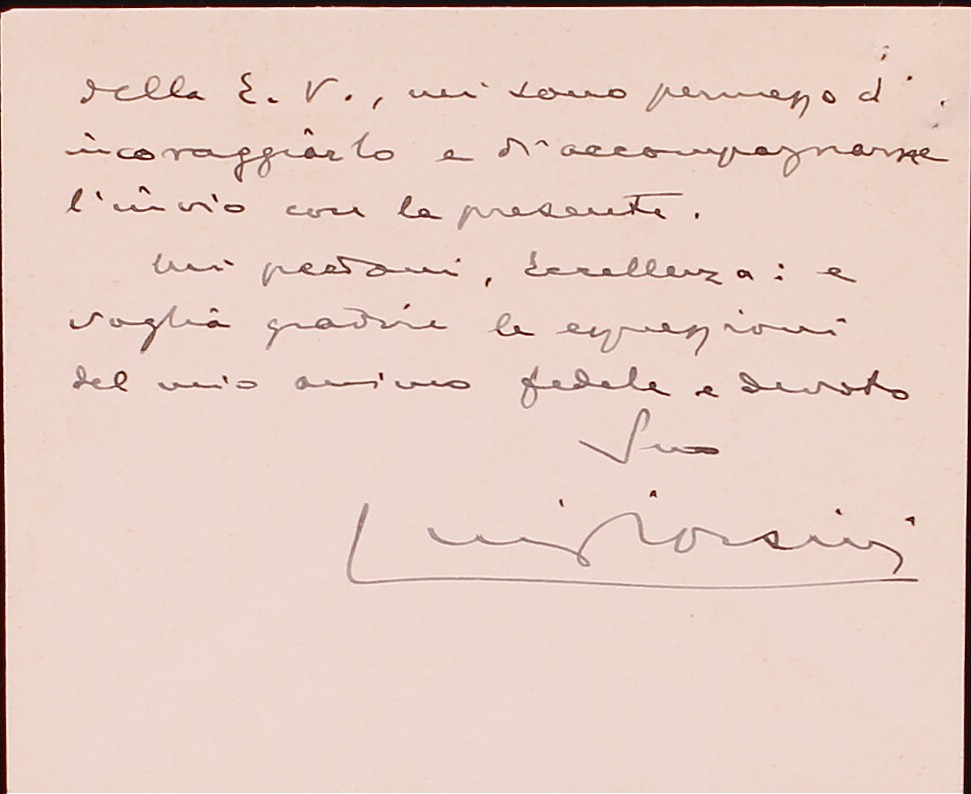 della E. V., mi sono permesso d'
incoraggiarlo e di accompagnarne
l'invio con la presente.
Mi perdoni, Eccellenza: e
voglia gradire le espressioni
del mio animo fedele e devoto
Suo
Luigi Orsini